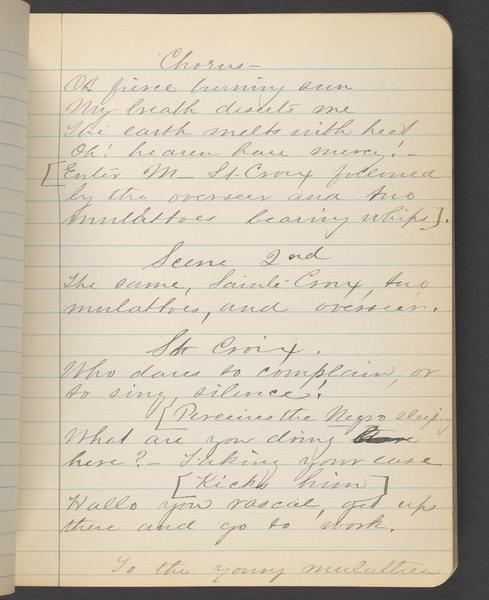 Chorus —
Oh fierce burning sun
My breath deserts me
The earth melts with heat
Oh! heaven have mercy! —
[Enter M— St Croix followed
by the overseer and two
mulattoes bearing whips].
Scene 2nd
The same, Sainte-Croix, two
mulattoes, and overseer.
St Croix.
Who dares to complain, or
to sing, silence!
[Perceives the Negro sleeping
What are you doing
here? — Taking your ease
[Kicks him]
Hallo you rascal, get up
there and go to work.
To the young mulattress